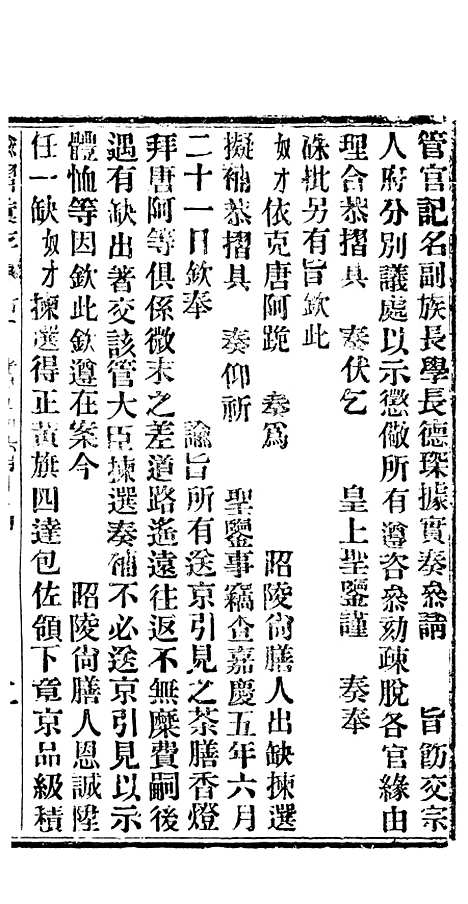 管官記名副族長學長德琛據實奏叅請　旨飭交宗
人府分別議處以示懲儆所有遵咨叅劾疎脫各官緣由
理合恭摺具　奏伏乞　皇上聖鑒謹　奏奉
硃批另有旨欽此
奴才依克唐阿跪　奏為　昭陵尙膳人出缺揀選
擬補恭摺具　奏仰祈　聖鑒事竊查嘉慶五年六月
二十一日欽奉　諭旨所有送京引見之茶膳香燈
拜唐阿等俱係微末之差道路遙遠往返不無糜費嗣後
遇有缺出著交該管大臣揀選奏補不必送京引見以示
體恤等因欽此欽遵在案今　昭陵尙膳人恩誠陞
任一缺奴才揀選得正黃旗四達包佐領下章京品級積